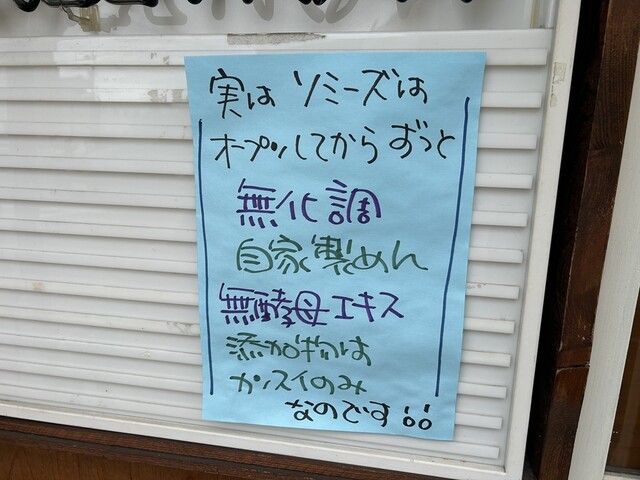 実は ソミーズは
オープンしてから ずっと
無化調
自家製めん
無酵母エキス
添加物は
カンスイのみ
なのです!!